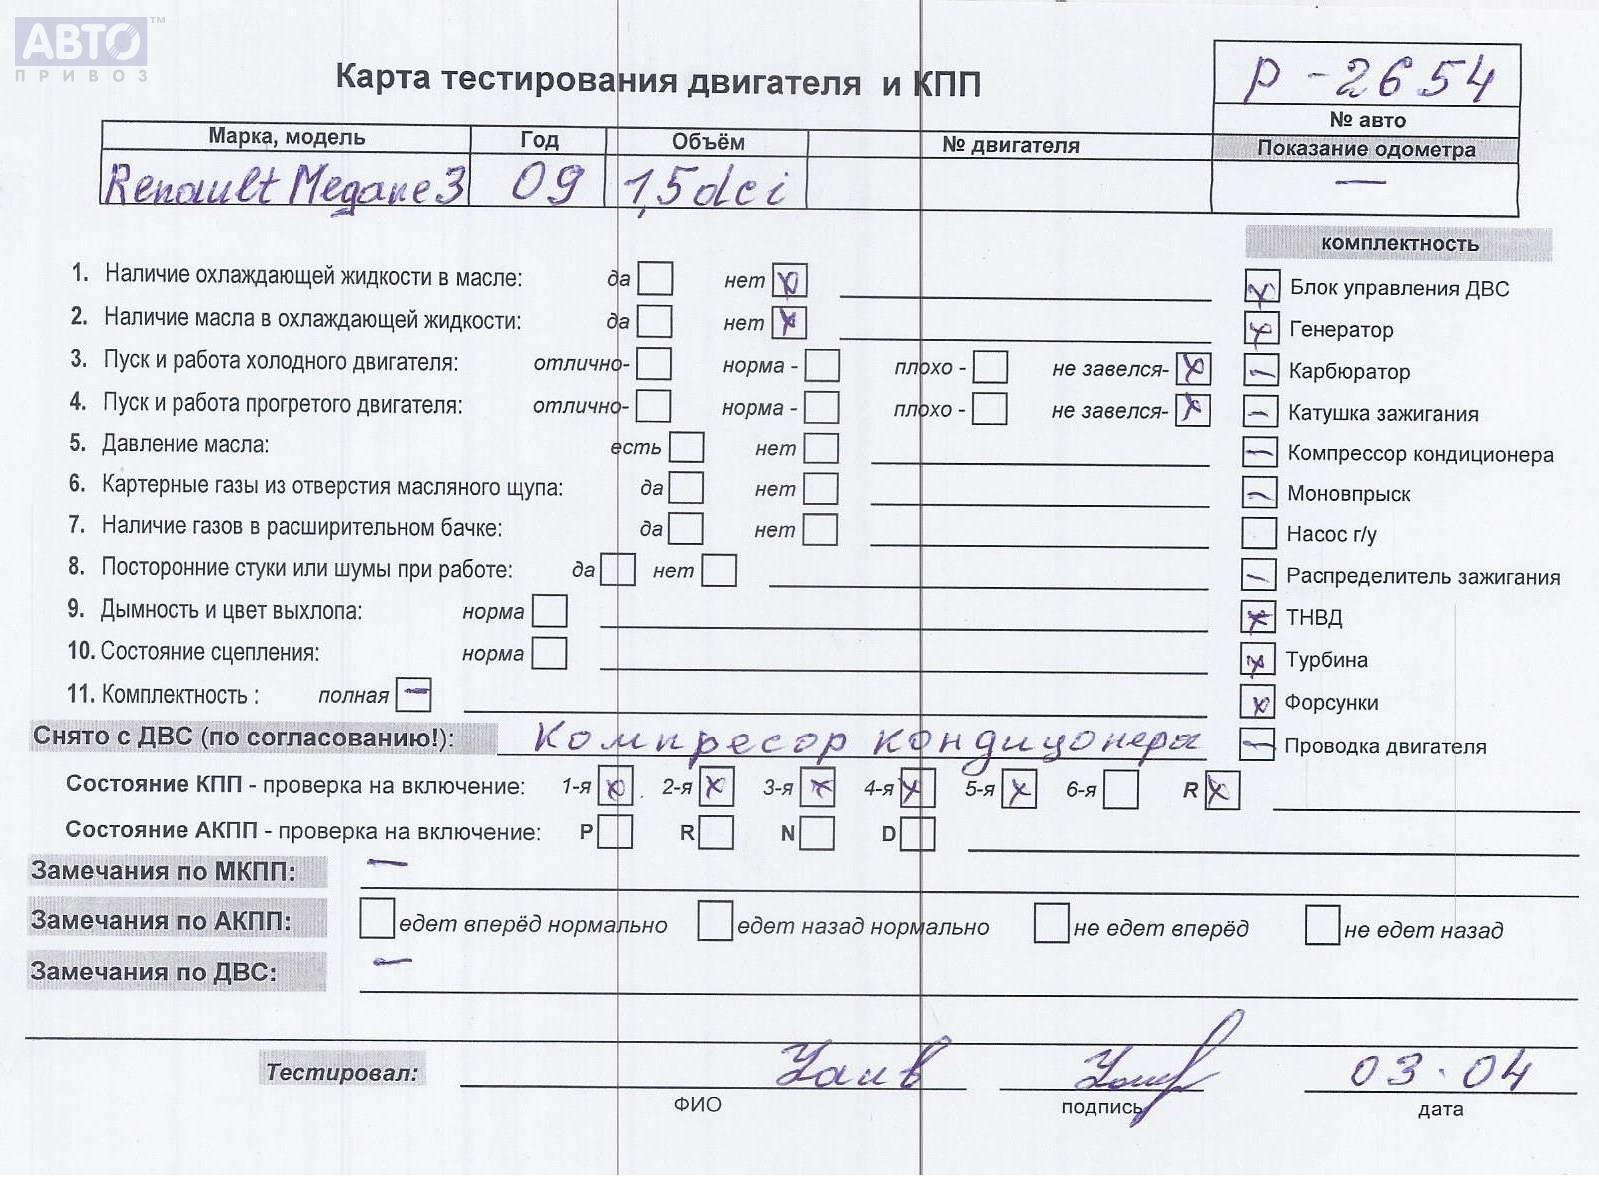 АВТО™
ПРИВОЗ
Карта тестирования двигателя и КПП
р-2654
№ авто
Марка, модель Год Объём № двигателя Показание одометра
Renault Megane 3 09 1,5 dci —
комплектность
1. Наличие охлаждающей жидкости в масле: да нет x
Блок управления ДВС
2. Наличие масла в охлаждающей жидкости: да нет x
Генератор
3. Пуск и работа холодного двигателя: отлично- норма - плохо - не завелся- x
Карбюратор
4. Пуск и работа прогретого двигателя: отлично- норма - плохо - не завелся- x
Катушка зажигания
5. Давление масла: есть нет
Компрессор кондиционера
6. Картерные газы из отверстия масляного щупа: да нет
Моновпрыск
7. Наличие газов в расширительном бачке: да нет
Насос г/у
8. Посторонние стуки или шумы при работе: да нет
Распределитель зажигания
9. Дымность и цвет выхлопа: норма
ТНВД
10. Состояние сцепления: норма
Турбина
11. Комплектность : полная —
Форсунки
Снято с ДВС (по согласованию!): Компресор кондицонера
Проводка двигателя
Состояние КПП - проверка на включение: 1-я x 2-я x 3-я x 4-я x 5-я x 6-я R x
Состояние АКПП - проверка на включение: P R N D
Замечания по МКПП: —
Замечания по АКПП: едет вперёд нормально едет назад нормально не едет вперёд не едет назад
Замечания по ДВС: —
Тестировал: 03.04
ФИО подпись дата